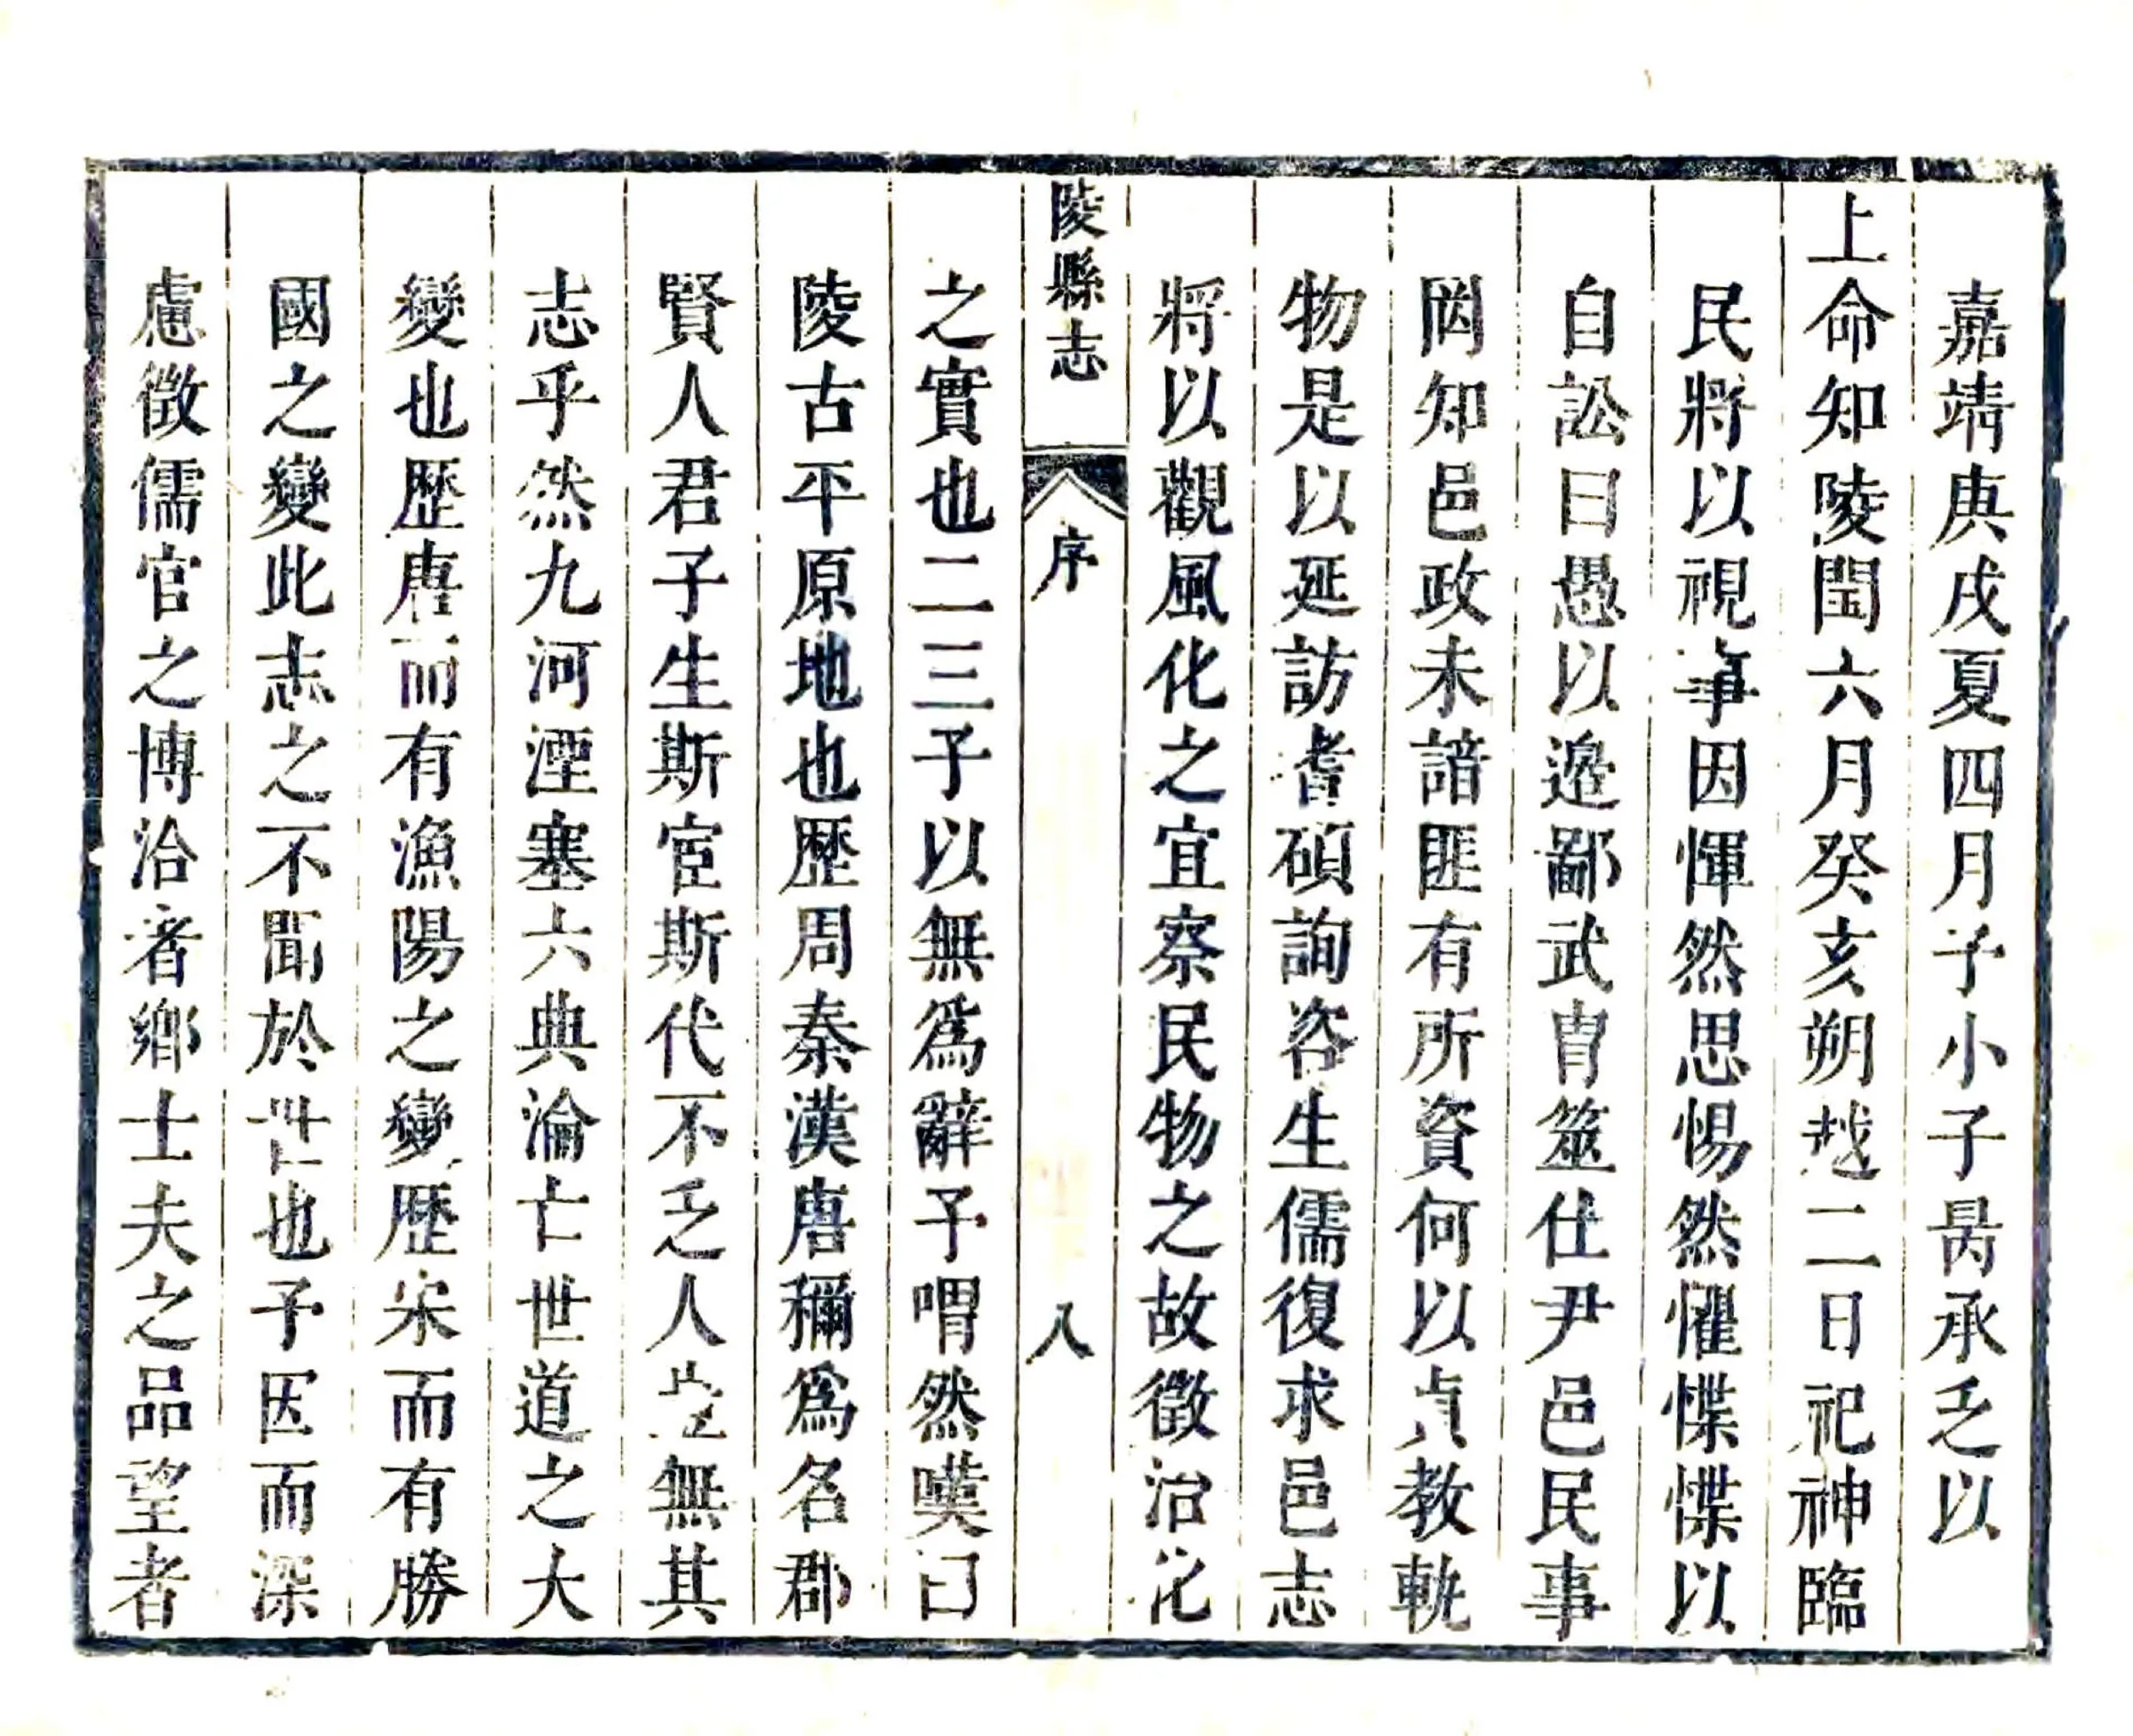 嘉靖庚戌夏四月予小子昺承乏以
上命知陵閏六月癸亥朔越二日祀神臨
民將以視事因惲然思惕然懼惵惵以
自訟曰愚以邉鄙武胄筮仕尹邑民事
罔知邑政未諳匪有所資何以貞教軌
物是以延訪耆碩詢咨生儒復求邑志
將以觀風化之宜察民物之故徵治化
陵縣志
序
八
之實也二三子以無爲辭予喟然嘆曰
陵古平原地也歷周秦漢唐稱爲名郡
賢人君子生斯宦斯代不乏人豈無其
志乎然九河湮塞六典淪亡世道之大
變也歷唐而有漁陽之變歷宋而有勝
國之變此志之不聞於世也予因而深
慮徵儒官之博洽者鄉士夫之品望者